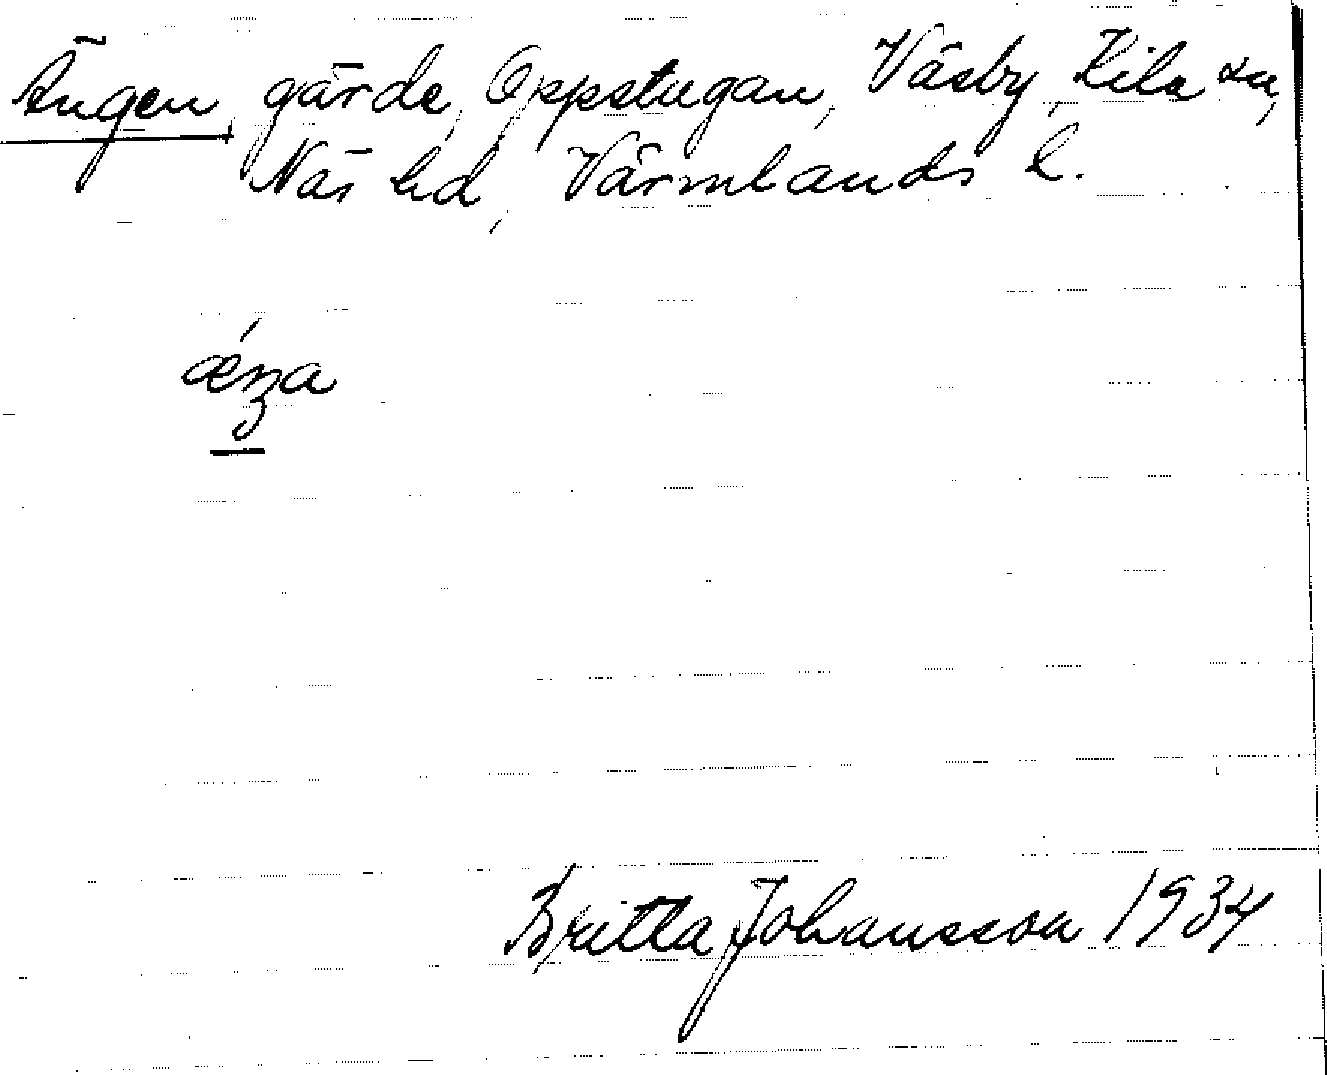 Ängen, gärde, Oppstugan, Väsby, Kila sn,
Näs hd, Värmlands l.
ǽŋa
Britta Johansson 1934